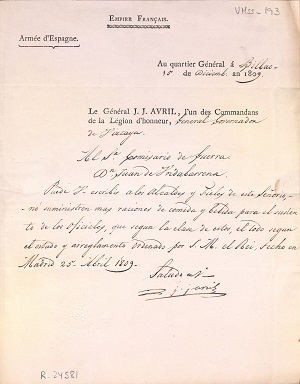 VM11-193
EMPIRE FRANÇAIS.
Armée d'Espagne.
Au quartier Général á Bilbao
15 de Diciemb. an 1809.
Le Général J. J. AVRIL, l'un des Commandans
de la Légion d'honneur, General Governador
de Vizcaya.
Al Sr. Comisario de Guerra
Dn. Juan de
Puede V. escribir a los Alcaldes y Fieles de este Señorio
no suministren mas raciones de comida y bebida para el susten
to de los oficiales, que segun la clase de estos, el todo segun
el estado y arreglamento ordenado por S. M. el Rei, fecho en
Madrid 25 Abril 1809.
Saluda a V.
J. J. Avril
R. 24581